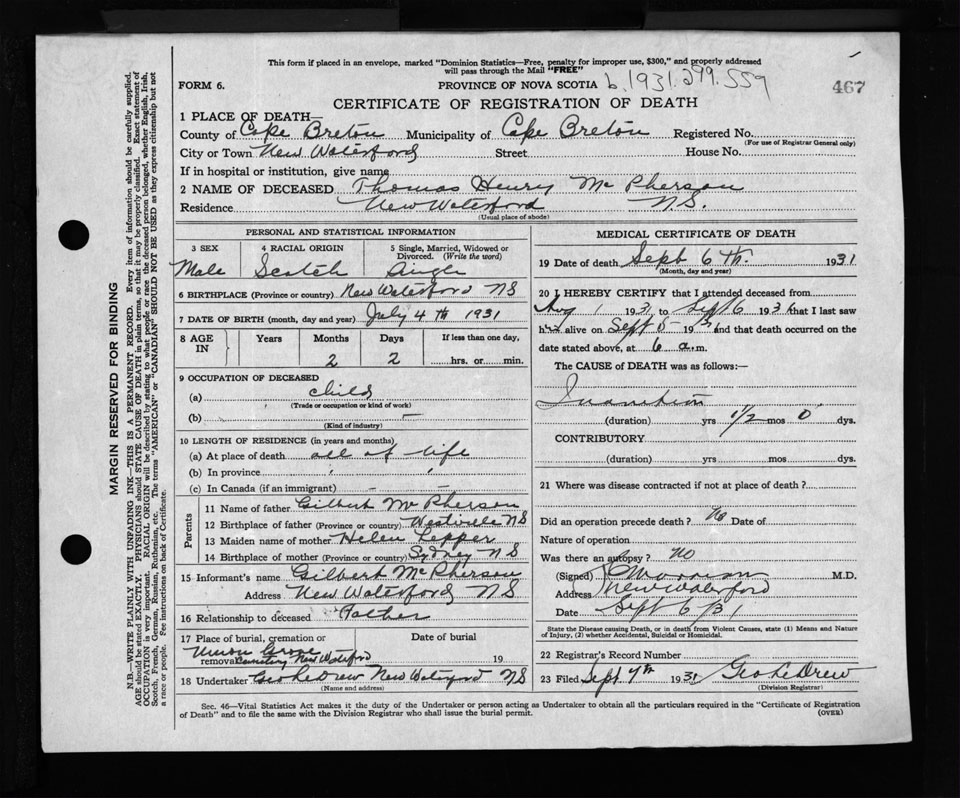 This form if placed in an envelope, marked "Dominion Statistics—Free, penalty for improper use, $300," and properly addressed
will pass through the Mail "FREE"
FORM 6.
PROVINCE OF NOVA SCOTIA b.1931.299.559
467
CERTIFICATE OF REGISTRATION OF DEATH
1 PLACE OF DEATH—
County of Cape Breton Municipality of Cape Breton Registered No.
(For use of Registrar General only)
City or Town New Waterford Street House No.
If in hospital or institution, give name
2 NAME OF DECEASED Thomas Henry McPherson
Residence New Waterford N.S.
(Usual place of abode)
PERSONAL AND STATISTICAL INFORMATION
3 SEX 4 RACIAL ORIGIN 5 Single, Married, Widowed or Divorced. (Write the word)
Male Scotch Single
6 BIRTHPLACE (Province or country) New Waterford NS
7 DATE OF BIRTH (month, day and year) July 4th 1931
8 AGE IN Years Months Days If less than one day,
2 2 hrs. or min.
9 OCCUPATION OF DECEASED
(a) child
(Trade or occupation or kind of work)
(b) —
(Kind of industry)
10 LENGTH OF RESIDENCE (in years and months)
(a) At place of death all of life
(b) In province " "
(c) In Canada (if an immigrant) — — —
Parents
11 Name of father Gilbert McPherson
12 Birthplace of father (Province or country) Westville NS
13 Maiden name of mother Helen Lepper
14 Birthplace of mother (Province or country) Sydney NS
15 Informant's name Gilbert McPherson
Address New Waterford NS
16 Relationship to deceased Father
17 Place of burial, cremation or removal Date of burial
Union Grove
Cemetery New Waterford 19
18 Undertaker Geo Drew New Waterford NS
(Name and address)
MEDICAL CERTIFICATE OF DEATH
19 Date of death Sept 6th. 1931
(Month, day and year)
20 I HEREBY CERTIFY that I attended deceased from
Aug 1 1931 to Sept 6 1931 that I last saw
alive on Sept 5 1931 and that death occurred on the
date stated above, at 6 a.m.
The CAUSE of DEATH was as follows:—
Inanition
(duration) yrs 1/2 mos 0 dys.
CONTRIBUTORY
(duration) yrs mos dys.
21 Where was disease contracted if not at place of death?
Did an operation precede death? No Date of
Nature of operation
Was there an autopsy? No
(Signed) M.D.
Address New Waterford
Date Sept 6/31
State the Disease causing Death, or in death from Violent Causes, state (1) Means and Nature
of Injury, (2) whether Accidental, Suicidal or Homicidal.
22 Registrar's Record Number
23 Filed Sept 7th 1931 Geo Drew
(Division Registrar)
Sec. 46—Vital Statistics Act makes it the duty of the Undertaker or person acting as Undertaker to obtain all the particulars required in the "Certificate of Registration
of Death" and to file the same with the Division Registrar who shall issue the burial permit.
(OVER)
MARGIN RESERVED FOR BINDING
N.B.—WRITE PLAINLY WITH UNFADING INK—THIS IS A PERMANENT RECORD. Every item of information should be carefully supplied.
AGE should be stated EXACTLY. PHYSICIANS should STATE CAUSE OF DEATH in plain terms, so that it may be properly classified. Exact statement of
OCCUPATION is very important. RACIAL ORIGIN will be described by stating to what people or race the deceased person belonged, whether English, Irish,
Scotch, French, German, Russian, Ruthenian, etc. The terms "AMERICAN" or "CANADIAN" SHOULD NOT BE USED as they express citizenship but not
a race or people. See instructions on back of Certificate.